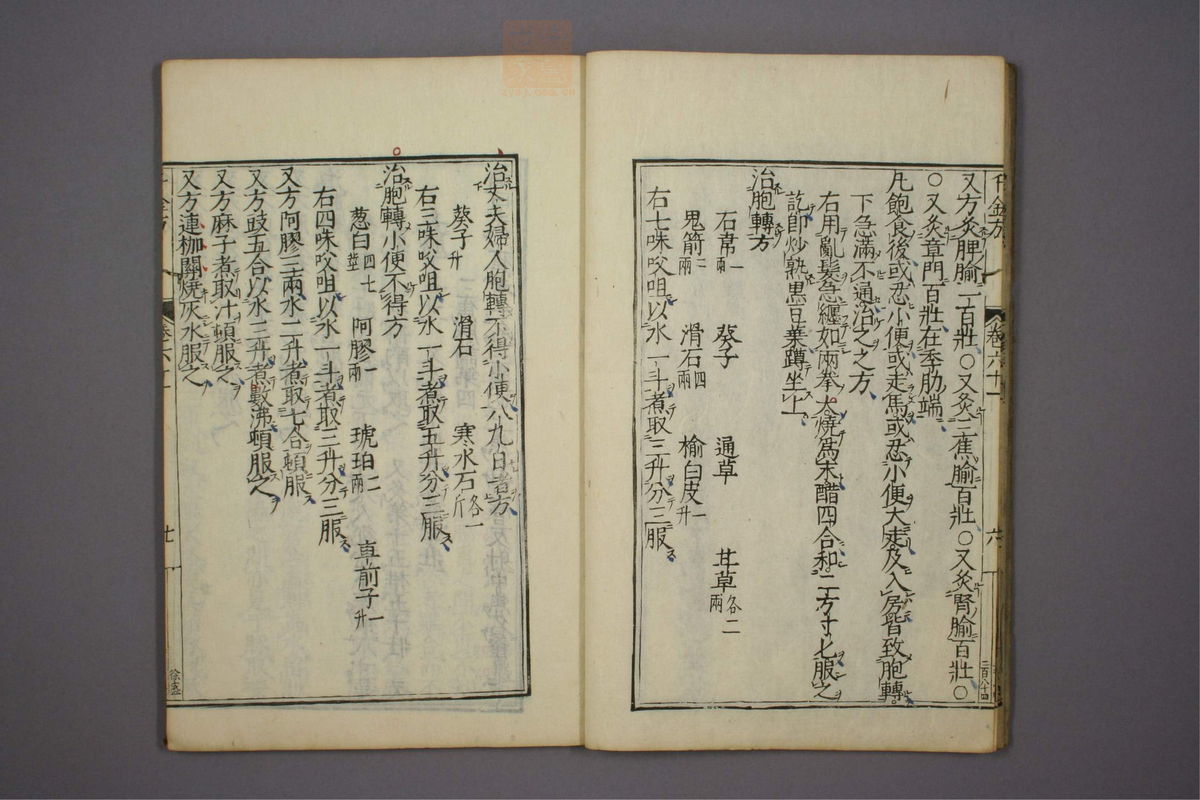 千金方
卷六十一
六
二百八十四
又方灸脾腧一百壯○又灸三焦腧百壯○又灸腎腧百壯○
○又灸章門百壯在季肋端
凡飽食後或忍小便或走馬或忍小便大走及入房皆致胞轉
下急滿不通治之之方
右用亂髮急纏如兩拳大燒爲末醋四合和二方寸匕服之
訖即炒熟黑豆葉蹲坐上
治胞轉方
石韋一兩 葵子 通草 甘草各二兩
鬼箭三兩 滑石四兩 榆白皮一升
右七味㕮咀以水一斗煮取三升分三服
治丈夫婦人胞轉不得小便八九日者方
葵子升 滑石 寒水石各一斤
右三味㕮咀以水一斗煮取五升分三服
治胞轉小便不得方
葱白四七莖 阿膠一兩 琥珀二兩 車前子一升
右四味㕮咀以水一斗煮取三升分三服
又方阿膠三兩水二升煮取七合頓服
又方豉五合以水三升煮數沸頓服之
又方麻子煮取汁頓服之
又方連枷關燒灰水服之
千金方
七